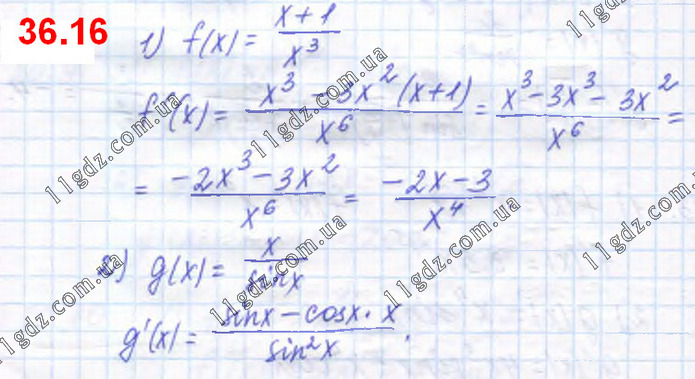 36.16
1) f(x) = (x+1)/x³
f'(x) = (x³ - 3x²(x+1))/x⁶ = (x³ - 3x³ - 3x²)/x⁶ =
= (-2x³ - 3x²)/x⁶ = (-2x - 3)/x⁴
2) g(x) = x/sin x
g'(x) = (sin x - cos x · x)/sin²x.
11gdz.com.ua
11gdz.com.ua
11gdz.com.ua
11gdz.com.ua
11gdz.com.ua
11gdz.com.ua